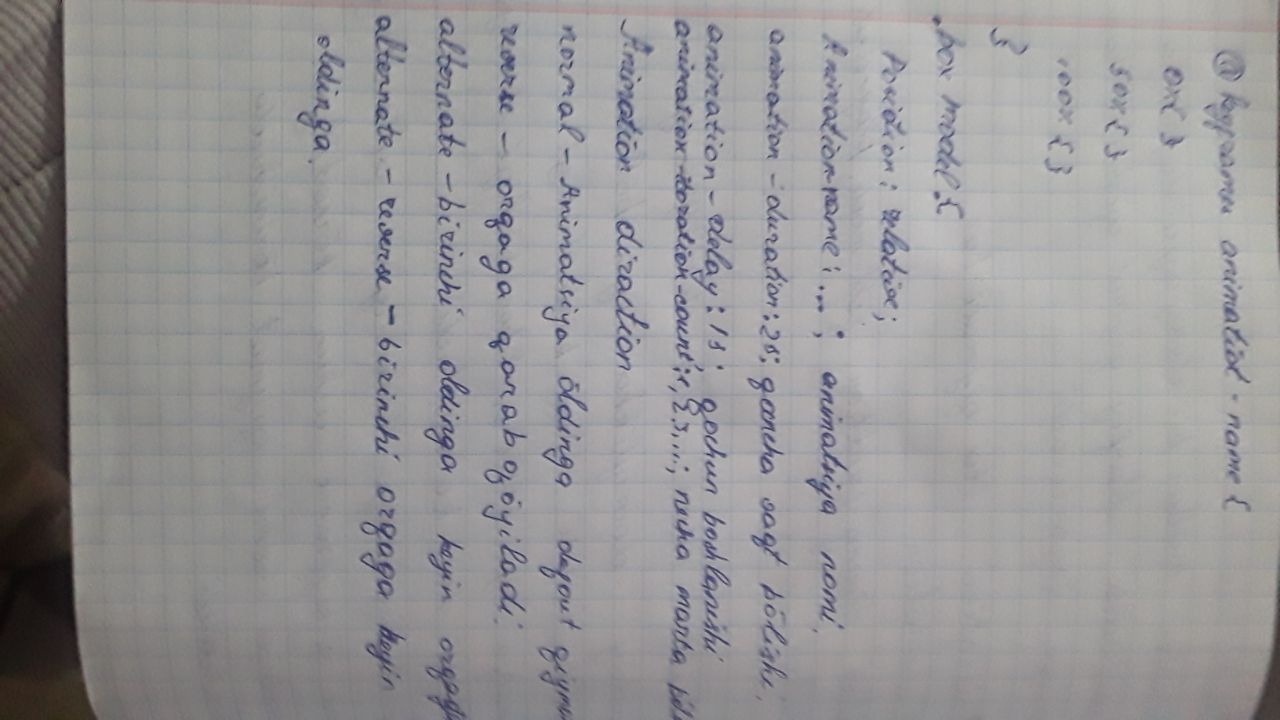 @keyframes animatiot-name {
0% }
50% { }
100% { }
}
.box model {
Position: relative;
Animation-name: ...; animatsiya nomi.
animation-duration: 2s; qancha vaqt bõlishi.
animation-delay: 1s; qachon boshlanishi
animation-iteration-count: 1, 2 3...; necha marta
Animation diraction
normal - Animatsiya õldinga
reverse - orqaga qarab qõyiladi.
alternate - birinchi oldinga keyin orqaga
alternate - reverse - birinchi orqaga keyin
oldinga.